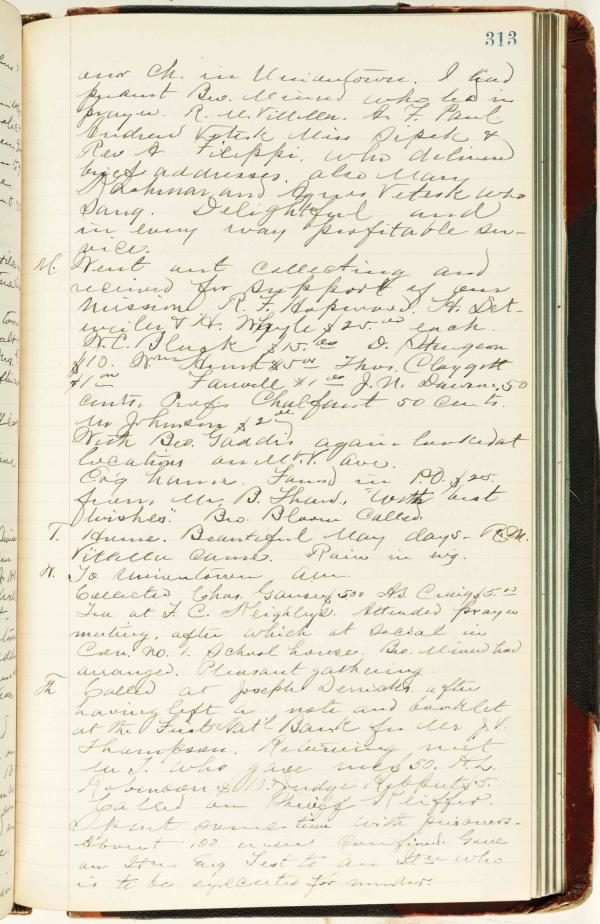 313
our Ch. in Uniontown. I had
present Bro. Minerd who led in
prayer. R. M. Villelli. A. F. Paul.
Andrew Vetesk Miss Sipek &
Rev A Filippi. who delivered
brief addresses. also Mary
and Agnes Vetesk who
sang. Delightful and
in every way profitable ser-
vice.
M. Went out collecting and
received for support of our
mission R. F. Hopwood. H. Det-
weiler & H. Whyle $25.00 each.
W. C. Black $15.00 D. Sturgeon
$10. Wm Hunt $5.00 Thos. Claggett
$1.00 Farwell $1.00 J. N. Dawson .50
cents, Profs Chalfant 50 cents.
Mr Johnson $2.00
With Bro. Gaddis again looked at
locations on Mt. V. Ave.
Evg home. Found in P.O. $25
from Mr. B. Thaw, "With best
wishes". Bro. Bloom called.
T. Home. Beautiful May days. R. M.
Villelli came. Rain in evg.
W. To Uniontown am.
Collected Chas. Gansey $5.00 A.S. Craig $5.00
Tea at F. C. Keighly's. Attended prayer
meeting, after which at social in
Cor. No. 1. School house. Bro. Minerd had
arranged. Pleasant gathering.
Th. Called at Joseph Derrick's, after
having left a note and booklet
at the First Nat'l Bank for Mr J.V.
Thompson. Returning met
Mr T. who gave me $50. A. L.
Robinson Judge $5.
Called on Sheriff Kieffer.
Spent some time with prisoners.
About 100 now confined. Gave
an Itn Eng Test to an Itn who
is to be executed for murder.